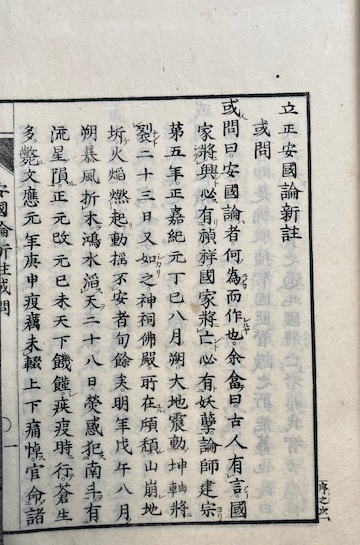 立正安國論新註
或問
或問曰安國論者何為而作也余畣曰古人有言國
家將興必有禎祥國家將亡必有妖孽論師建宗
第五年正嘉紀元丁巳八月朔大地震動坤軸將
裂二十三日又如之神祠佛殿所在頹山崩地
坼火焰燃起動搖不安者旬餘矣明年戊午八月
朔暴風折木鴻水滔天二十八日熒惑犯南斗有
流星隕正元改元己未天下饑饉疾疫時行蒼生
多斃文應元年庚申疫癘未輟上下痛悼官命諸
安國論新註或問
一